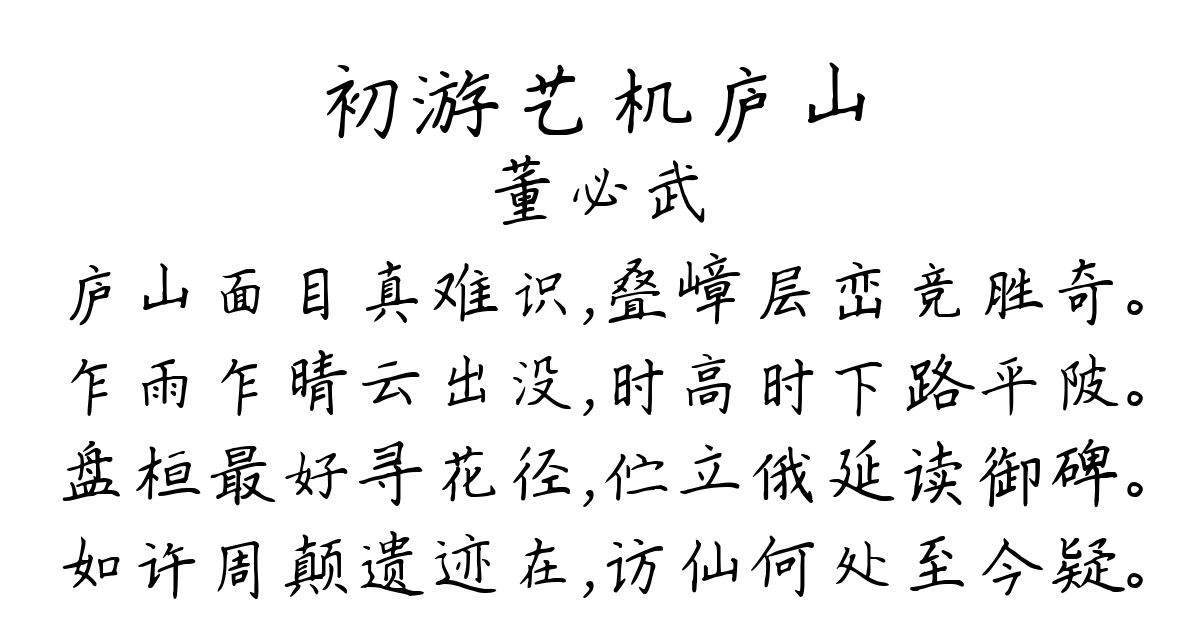 初游艺机庐山
董必武
庐山面目真难识,叠嶂层峦竞胜奇。
乍雨乍晴云出没,时高时下路平陂。
盘桓最好寻花径,伫立俄延读御碑。
如许周颠遗迹在,访仙何处至今疑。